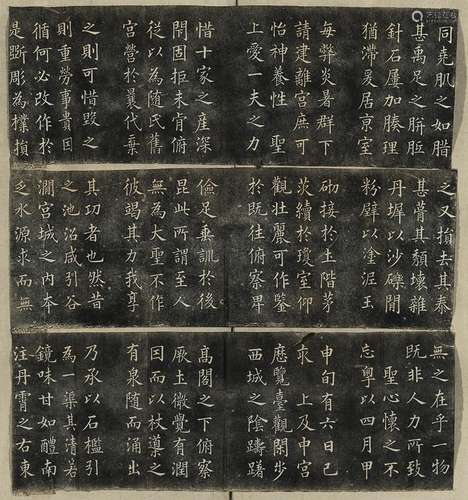 同堯肌之如腊
甚禹足之胼胝
針石屢加腠理
猶滯爰居京室
每弊炎暑群下
請建離宮庶可
怡神養性 聖
上愛一夫之力
惜十家之產深
閉固拒未肯俯
從以為隨氏舊
宮營於曩代棄
之則可惜毀之
則重勞事貴因
循何必改作於
是斲彫為樸損
之又損去其泰
甚葺其頹壞雜
丹墀以沙礫間
粉壁以塗泥玉
砌接於土階茅
茨續於瓊室仰
觀壯麗可作鑒
於既往俯察卑
儉足垂訓於後
昆此所謂至人
無為大聖不作
彼竭其力我享
其功者也然昔
之池沼咸引谷
澗宮城之內本
乏水源求而無
無之在乎一物
既非人力所致
聖心懷之不
忘粵以四月甲
申旬有六日己
亥 上及中宮
歷覽臺觀閑步
西城之陰躊躇
高閣之下俯察
厥土微覺有潤
因而以杖導之
有泉隨而涌出
乃承以石檻引
為一渠其清若
鏡味甘如醴南
注丹霄之右東